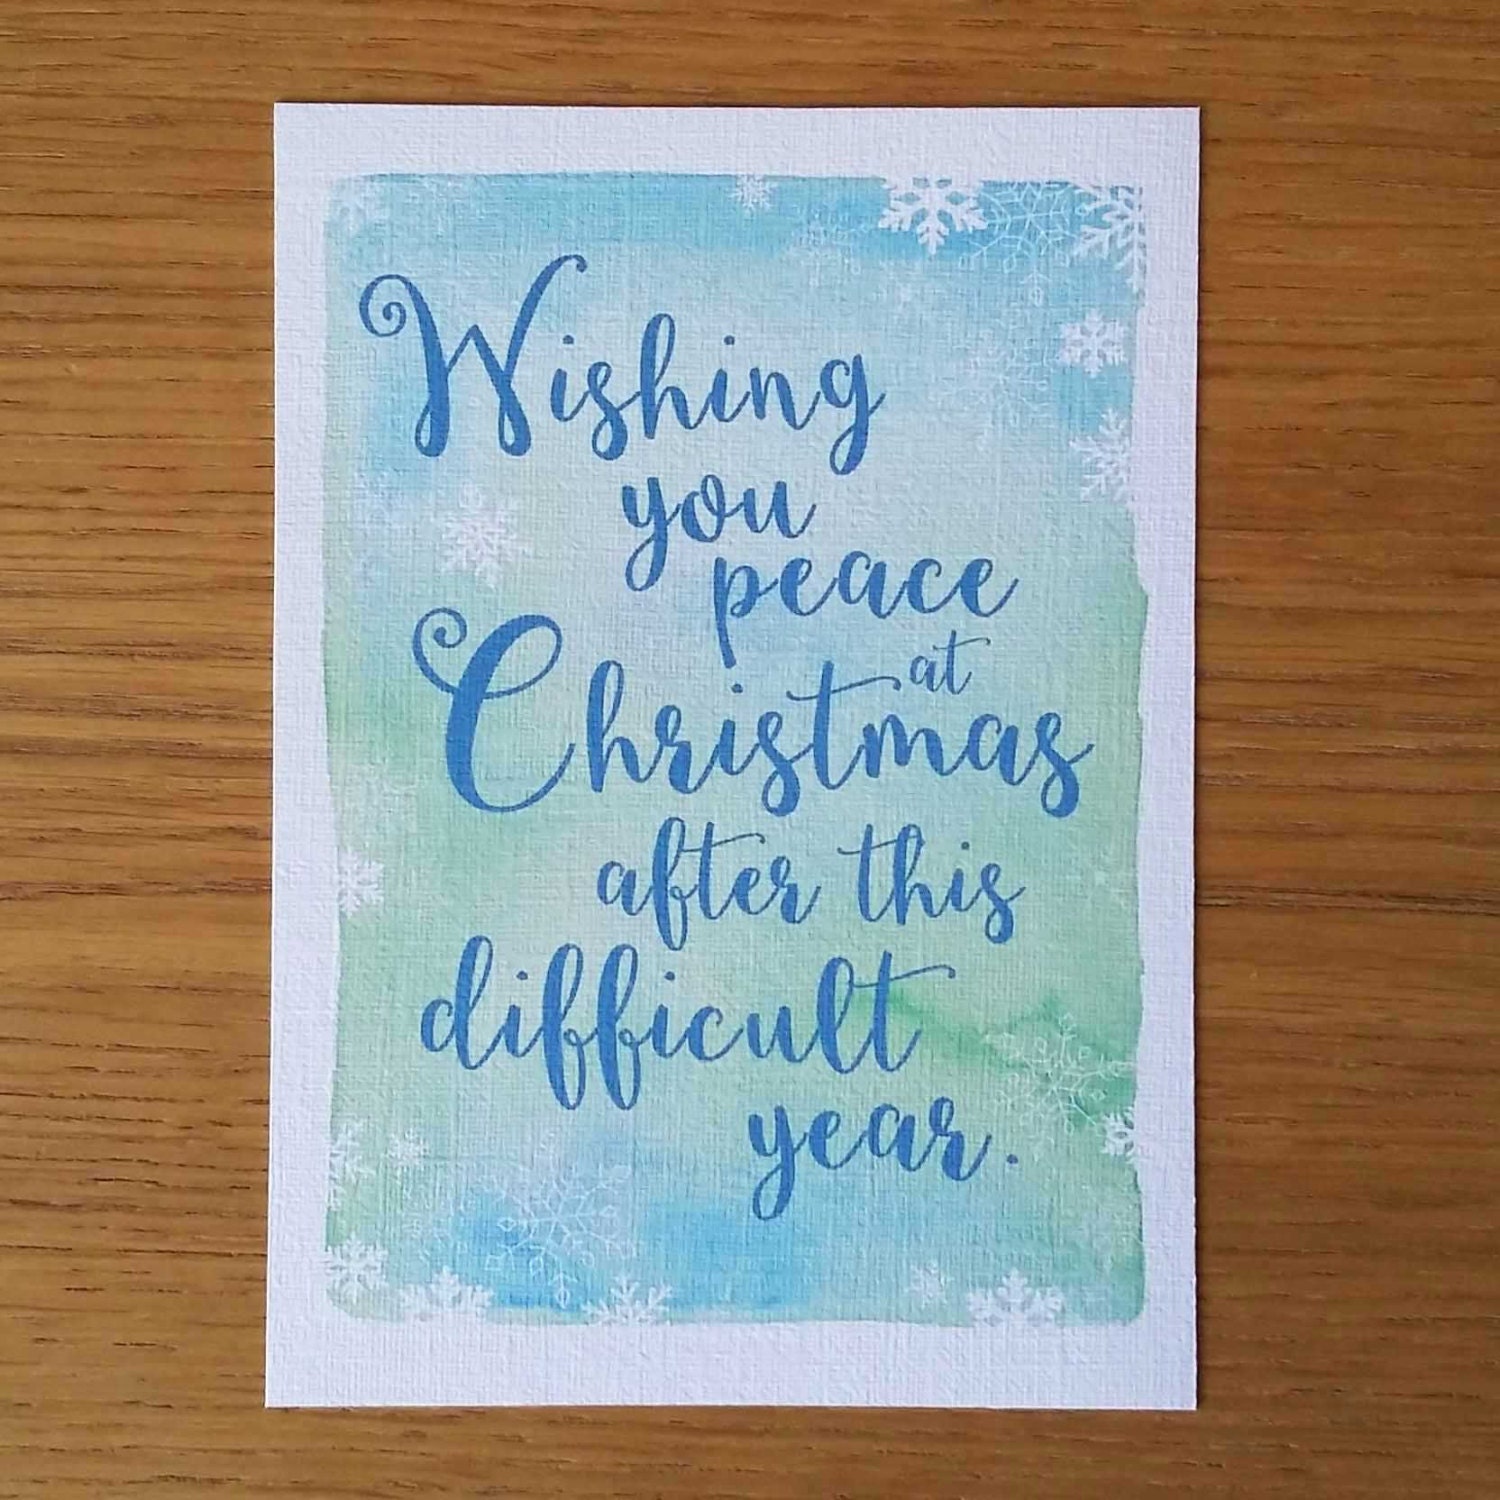 Wishing
you
peace
at
Christmas
after this
difficult
year.